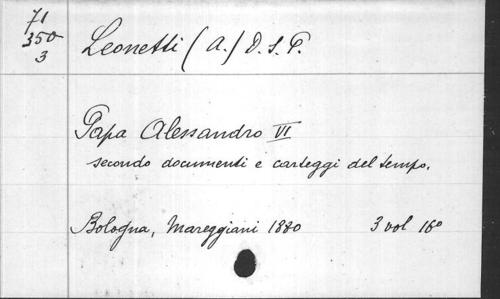 71
350
3
Leonetti (A.) D. S. P.
Papa Alessandro VI
secondo documenti e carteggi del tempo.
Bologna, Mareggiani 1880 3 vol 16º